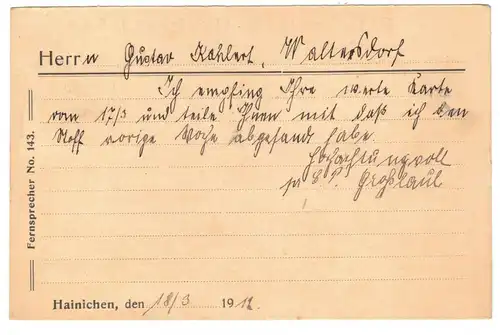 Herrn Gustav Kahlert, Waltersdorf
Ich empfing Ihre werte Karte
vom 17/3 und teile Ihnen mit daß ich den
Stoff vorige Woche abgesandt habe.
Hochachtungsvoll
Fernsprecher No. 143.
Hainichen, den 18/3 1912